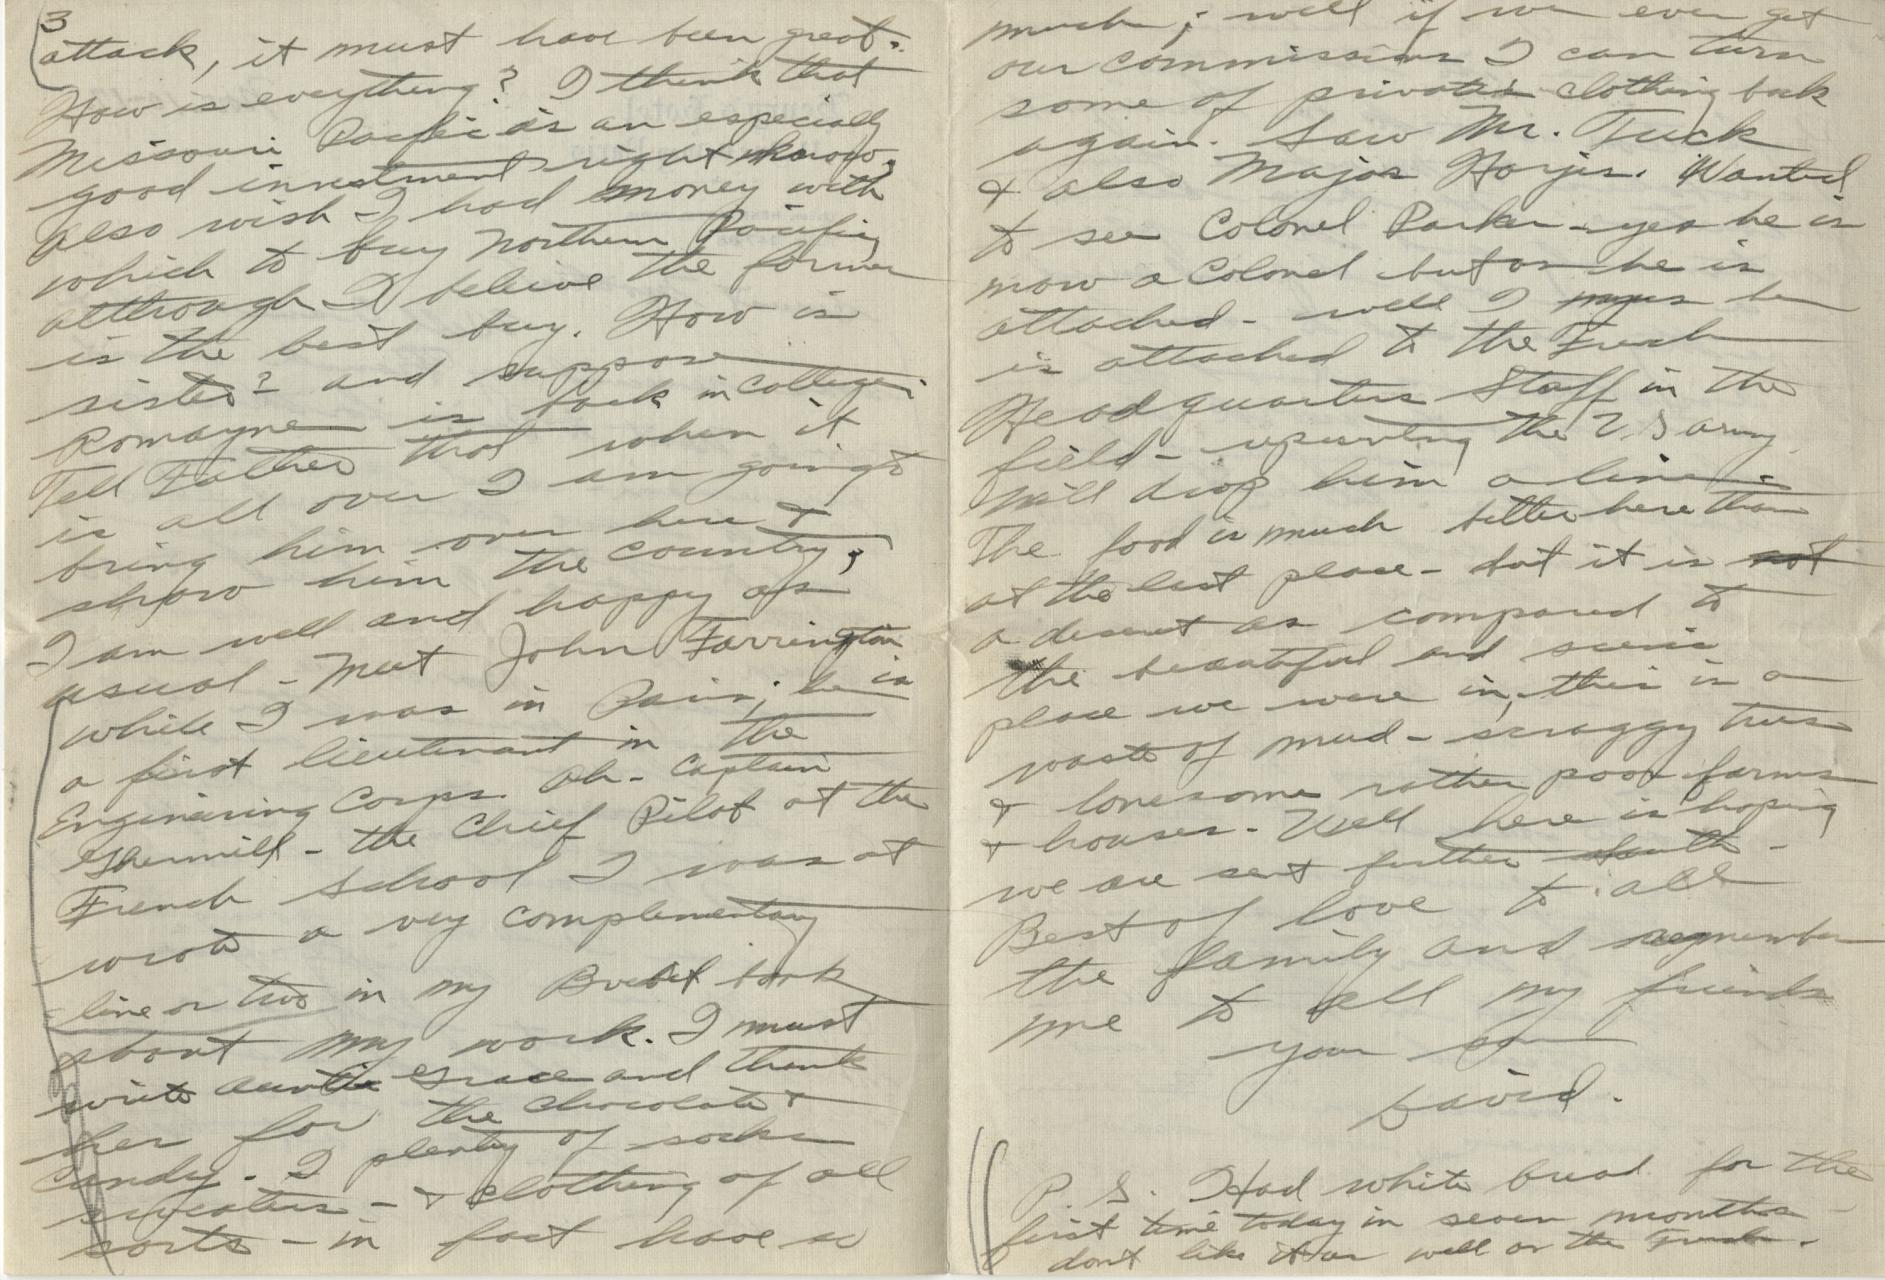 3
attack, it must have been great.
How is everything? I think that
Missouri Pacific is an especially
good investment right know,
also wish I had money with
which to buy Northern Pacific
although I believe the former
is the best buy. How is
sister? and suppose
Romayne is back in College;
Tell Father that when it
is all over I am going to
bring him over here &
show him the country;
I am well and happy as
usual - Meet John Farrington
while I was in Paris; he is
a first lieutenant in the
Engineering Corps. Oh - Captain
- the Chief Pilot at the
French School I was at
wrote a very complimentary
line or two in my Brevet book
about my work. I must
write Auntie Grace and thank
her for the chocolate &
candy. I plenty of socks
sweaters - & clothing of all
sorts - in fact have so
much; well if we ever get
our commissions I can turn
some of private clothing back
again. Saw Mr. Tuck
& also Major Harjes. Wanted
to see Colonel Parker - yes he is
now a Colonel but as he is
attached - well I be
is attached to the French
Headquarters Staff in the
field - the U.S army
Will drop him a line.
The food is much better here than
at the last place - but it is not
a desert as compared to
the beautiful and scenic
place we were in, this is a
waste of mud - scraggy trees
& lonesome rather poor farms
& houses. Well here is hoping
we are sent further South -
Best of love to all
the family and remember
me to all my friends
your son
David.
P.S. Had white bread for the
first time today in seven months -
don't like it as well as the French.